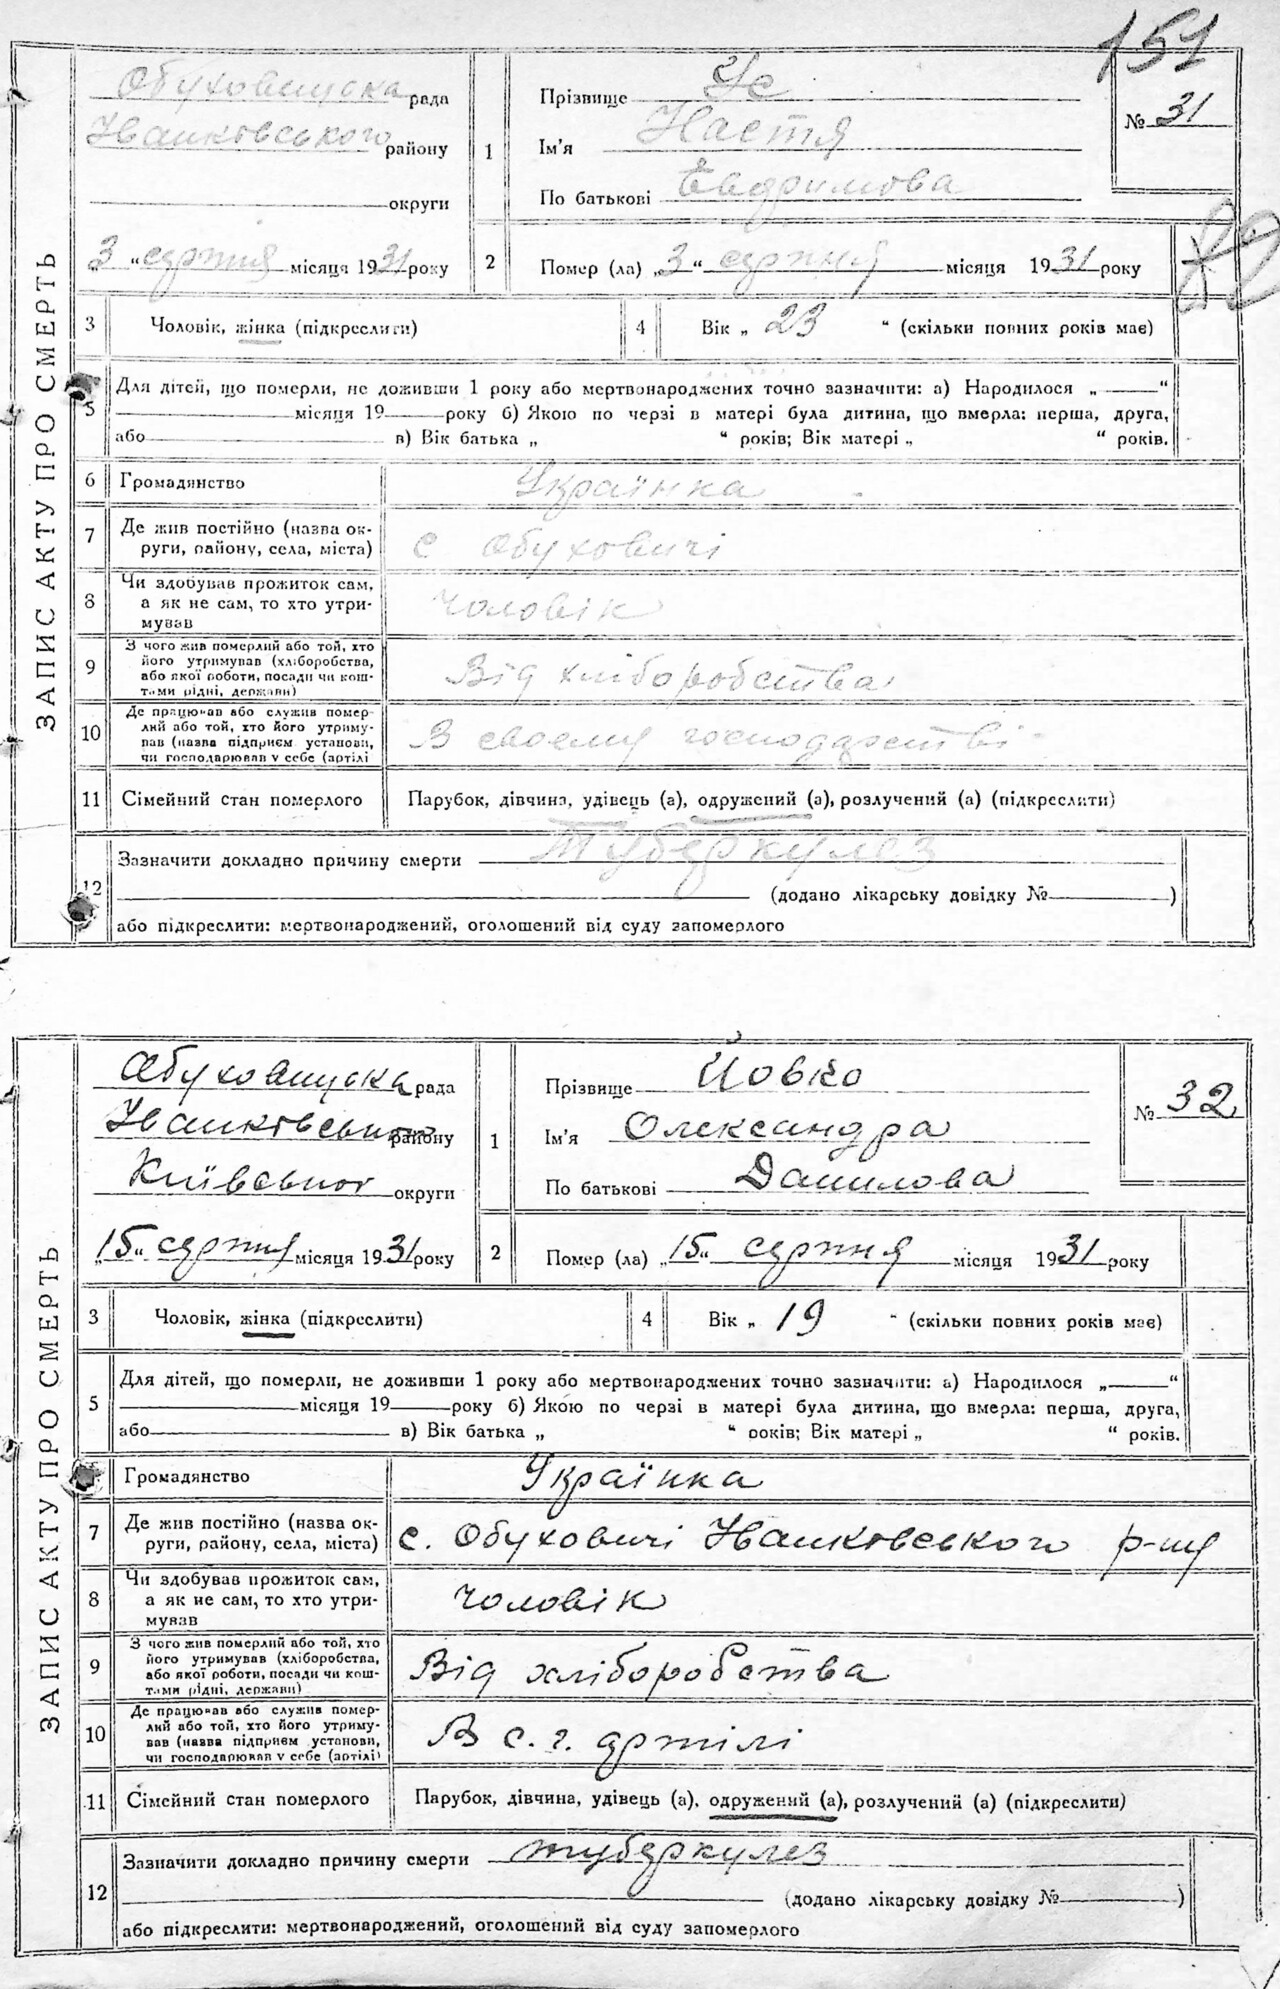 151
ЗАПИС АКТУ ПРО СМЕРТЬ
Обуховицька рада
Іванковського району
округи
3 "серпня місяця 1931 року
1
Прізвище Ус
Ім'я Настя
По батькові Евдримова
№ 31
2 Помер (ла) „3" серпня місяця 1931 року
82
3 Чоловік, жінка (підкреслити)
4 Вік „ 23 " (скільки повних років має)
5 Для дітей, що померли, не доживши 1 року або мертвонароджених точно зазначити: а) Народилося „ "
місяця 19 року б) Якою по черзі в матері була дитина, що вмерла: перша, друга,
або в) Вік батька „ " років; Вік матері „ " років.
6 Громадянство Українка
7 Де жив постійно (назва ок-
руги, району, села, міста) с Обуховичі
8 Чи здобував прожиток сам,
а як не сам, то хто утри-
мував чоловік
9 З чого жив померлий або той, хто
його утримував (хліборобства,
або якої роботи, посади чи кош-
тами рідні, держави) Від хліборобства
10 Де працював або служив помер-
лий або той, хто його утриму-
вав (назва підприєм установи,
чи господарював у себе (артілі В своему господарстві
11 Сімейний стан померлого Парубок, дівчина, удівець (а), одружений (а), розлучений (а) (підкреслити)
12 Зазначити докладно причину смерти Туберкулез
(додано лікарську довідку № )
або підкреслити: мертвонароджений, оголошений від суду запомерлого
ЗАПИС АКТУ ПРО СМЕРТЬ
Обуховицька рада
Іванковського району
Київської округи
„15" серпня місяця 1931 року
1
Прізвище Йовко
Ім'я Олександра
По батькові Данилова
№ 32
2 Помер (ла) „15" серпня місяця 1931 року
3 Чоловік, жінка (підкреслити)
4 Вік „ 19 " (скільки повних років має)
5 Для дітей, що померли, не доживши 1 року або мертвонароджених точно зазначити: а) Народилося „ "
місяця 19 року б) Якою по черзі в матері була дитина, що вмерла: перша, друга,
або в) Вік батька „ " років; Вік матері „ " років.
Громадянство Українка
7 Де жив постійно (назва ок-
руги, району, села, міста) с. Обуховичі Іванковського р-ну
8 Чи здобував прожиток сам,
а як не сам, то хто утри-
мував чоловік
9 З чого жив померлий або той, хто
його утримував (хліборобства,
або якої роботи, посади чи кош-
тами рідні, держави) Від хліборобства
10 Де працював або служив помер-
лий або той, хто його утриму-
вав (назва підприєм установи,
чи господарював у себе (артілі) В с. г. артілі
11 Сімейний стан померлого Парубок, дівчина, удівець (а), одружений (а), розлучений (а) (підкреслити)
12 Зазначити докладно причину смерти туберкулез
(додано лікарську довідку № )
або підкреслити: мертвонароджений, оголошений від суду запомерлого